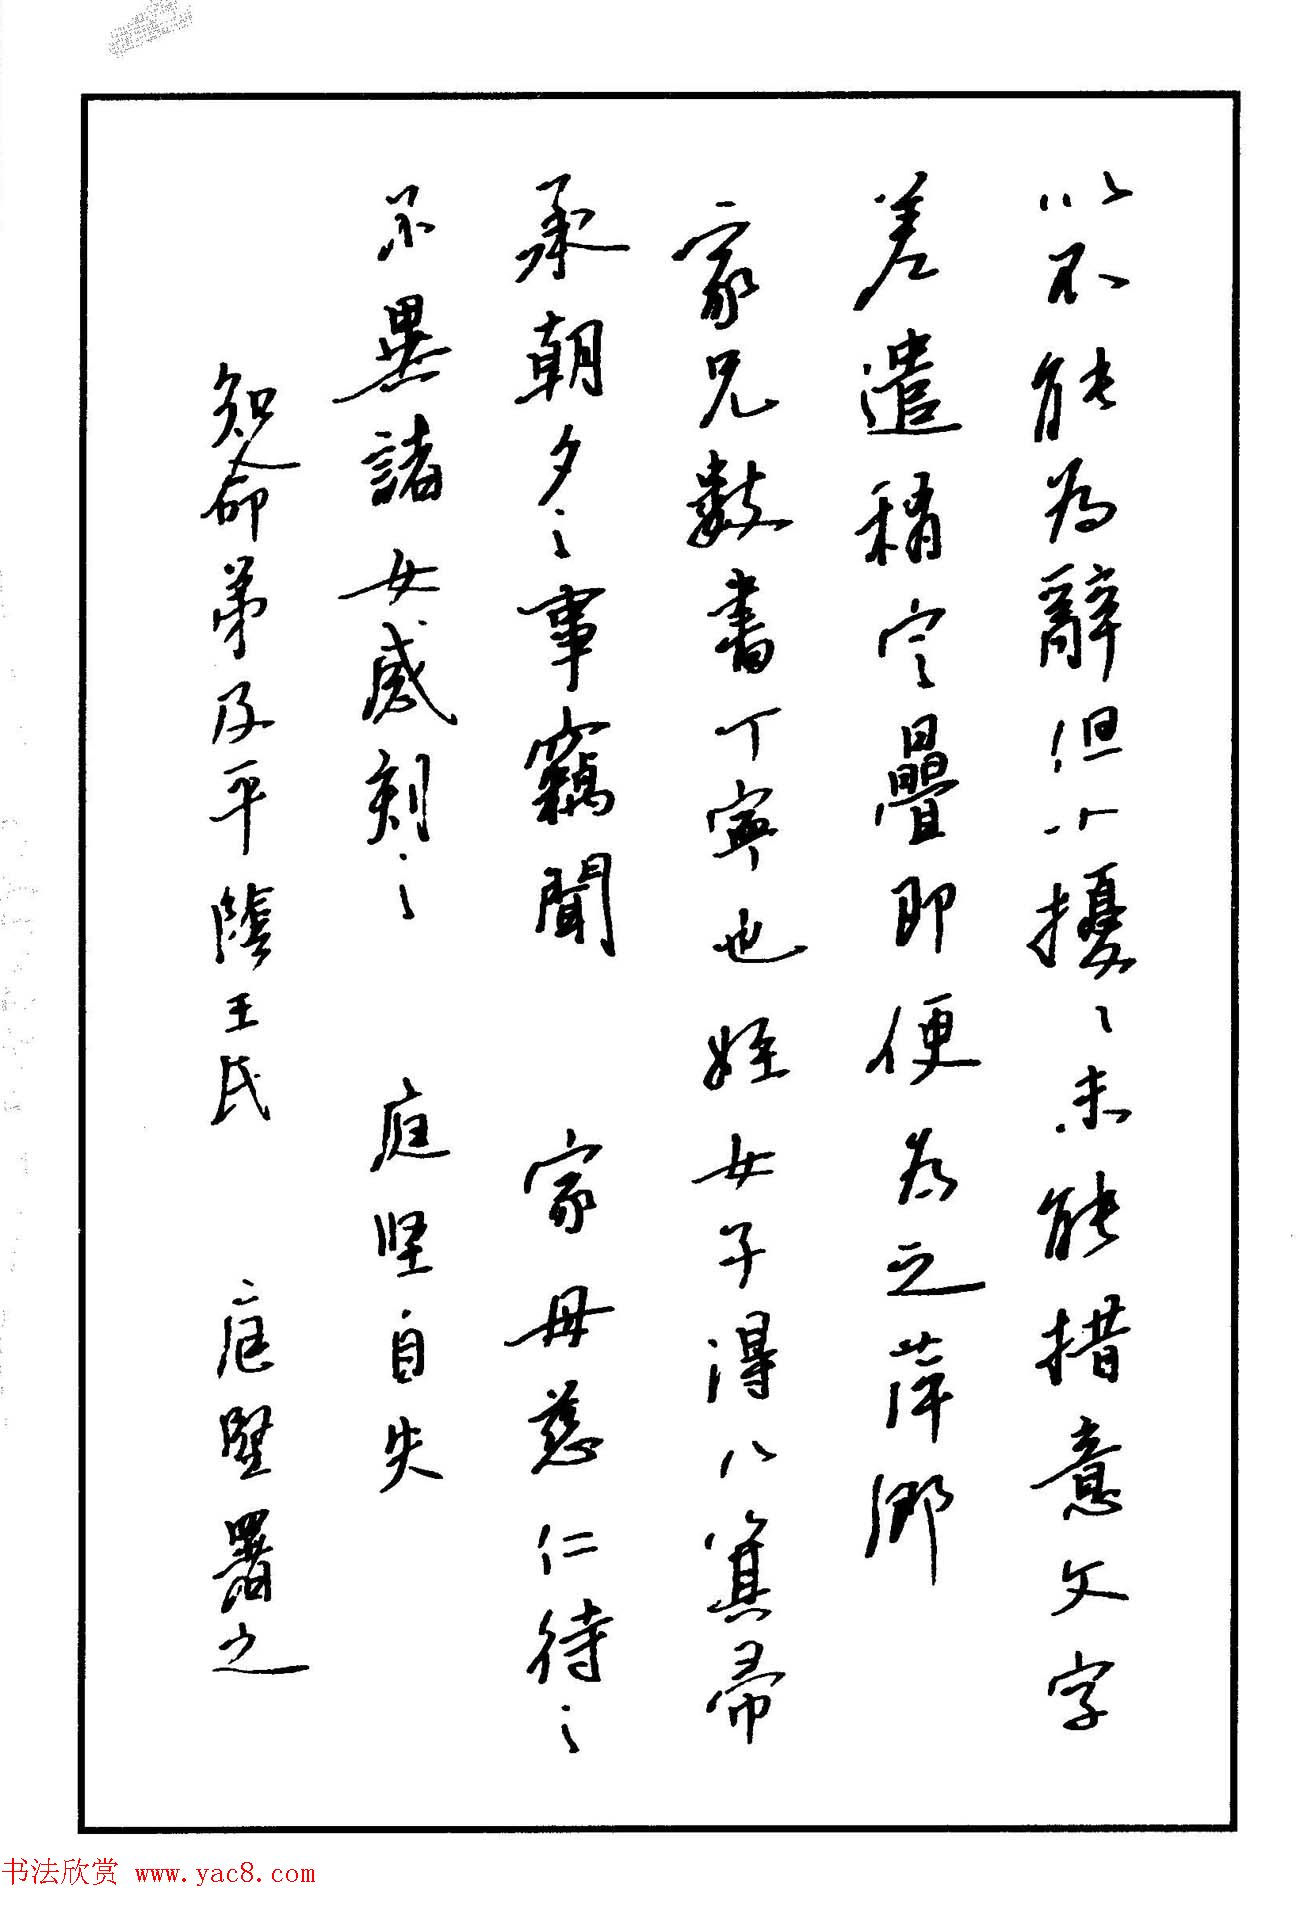 以不能為辭但以擾之未能措意文字
差遣稍定疊即便為之萍鄉
家兄數書丁寧也姪女子得以箕帚
承朝夕之事竊聞 家母慈仁待之
不異諸女感刻之 庭堅自失
知命弟及平陰王氏 庭堅署之
书法欣赏 www.yac8.com